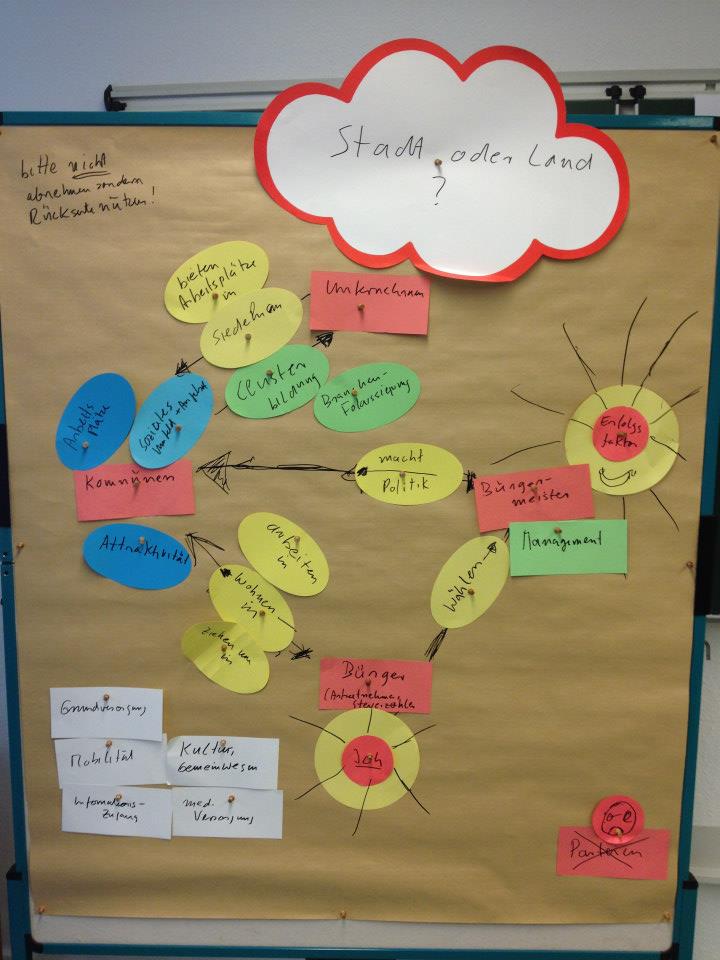 Stadt oder Land
?
bitte nicht
abnehmen sondern
Rückseite nützen!
bieten
Arbeitsplätze
in
Siedeln an
Unternehmen
Cluster
bildung
Branchen-
Fokussierung
Arbeits
plätze
soziales
Kommunen
Attraktivität
macht
Politik
Bürger-
meister
Management
Erfolgs
faktor
wählen
arbeiten
in
wohnen
in
ziehen um
in
Bürger
(Arbeitnehmer,
Steuerzahler
Ich
Grundversorgung
Mobilität
Kultur,
Gemeinwesen
Informations-
Zugang
med.
Versorgung
Parteien